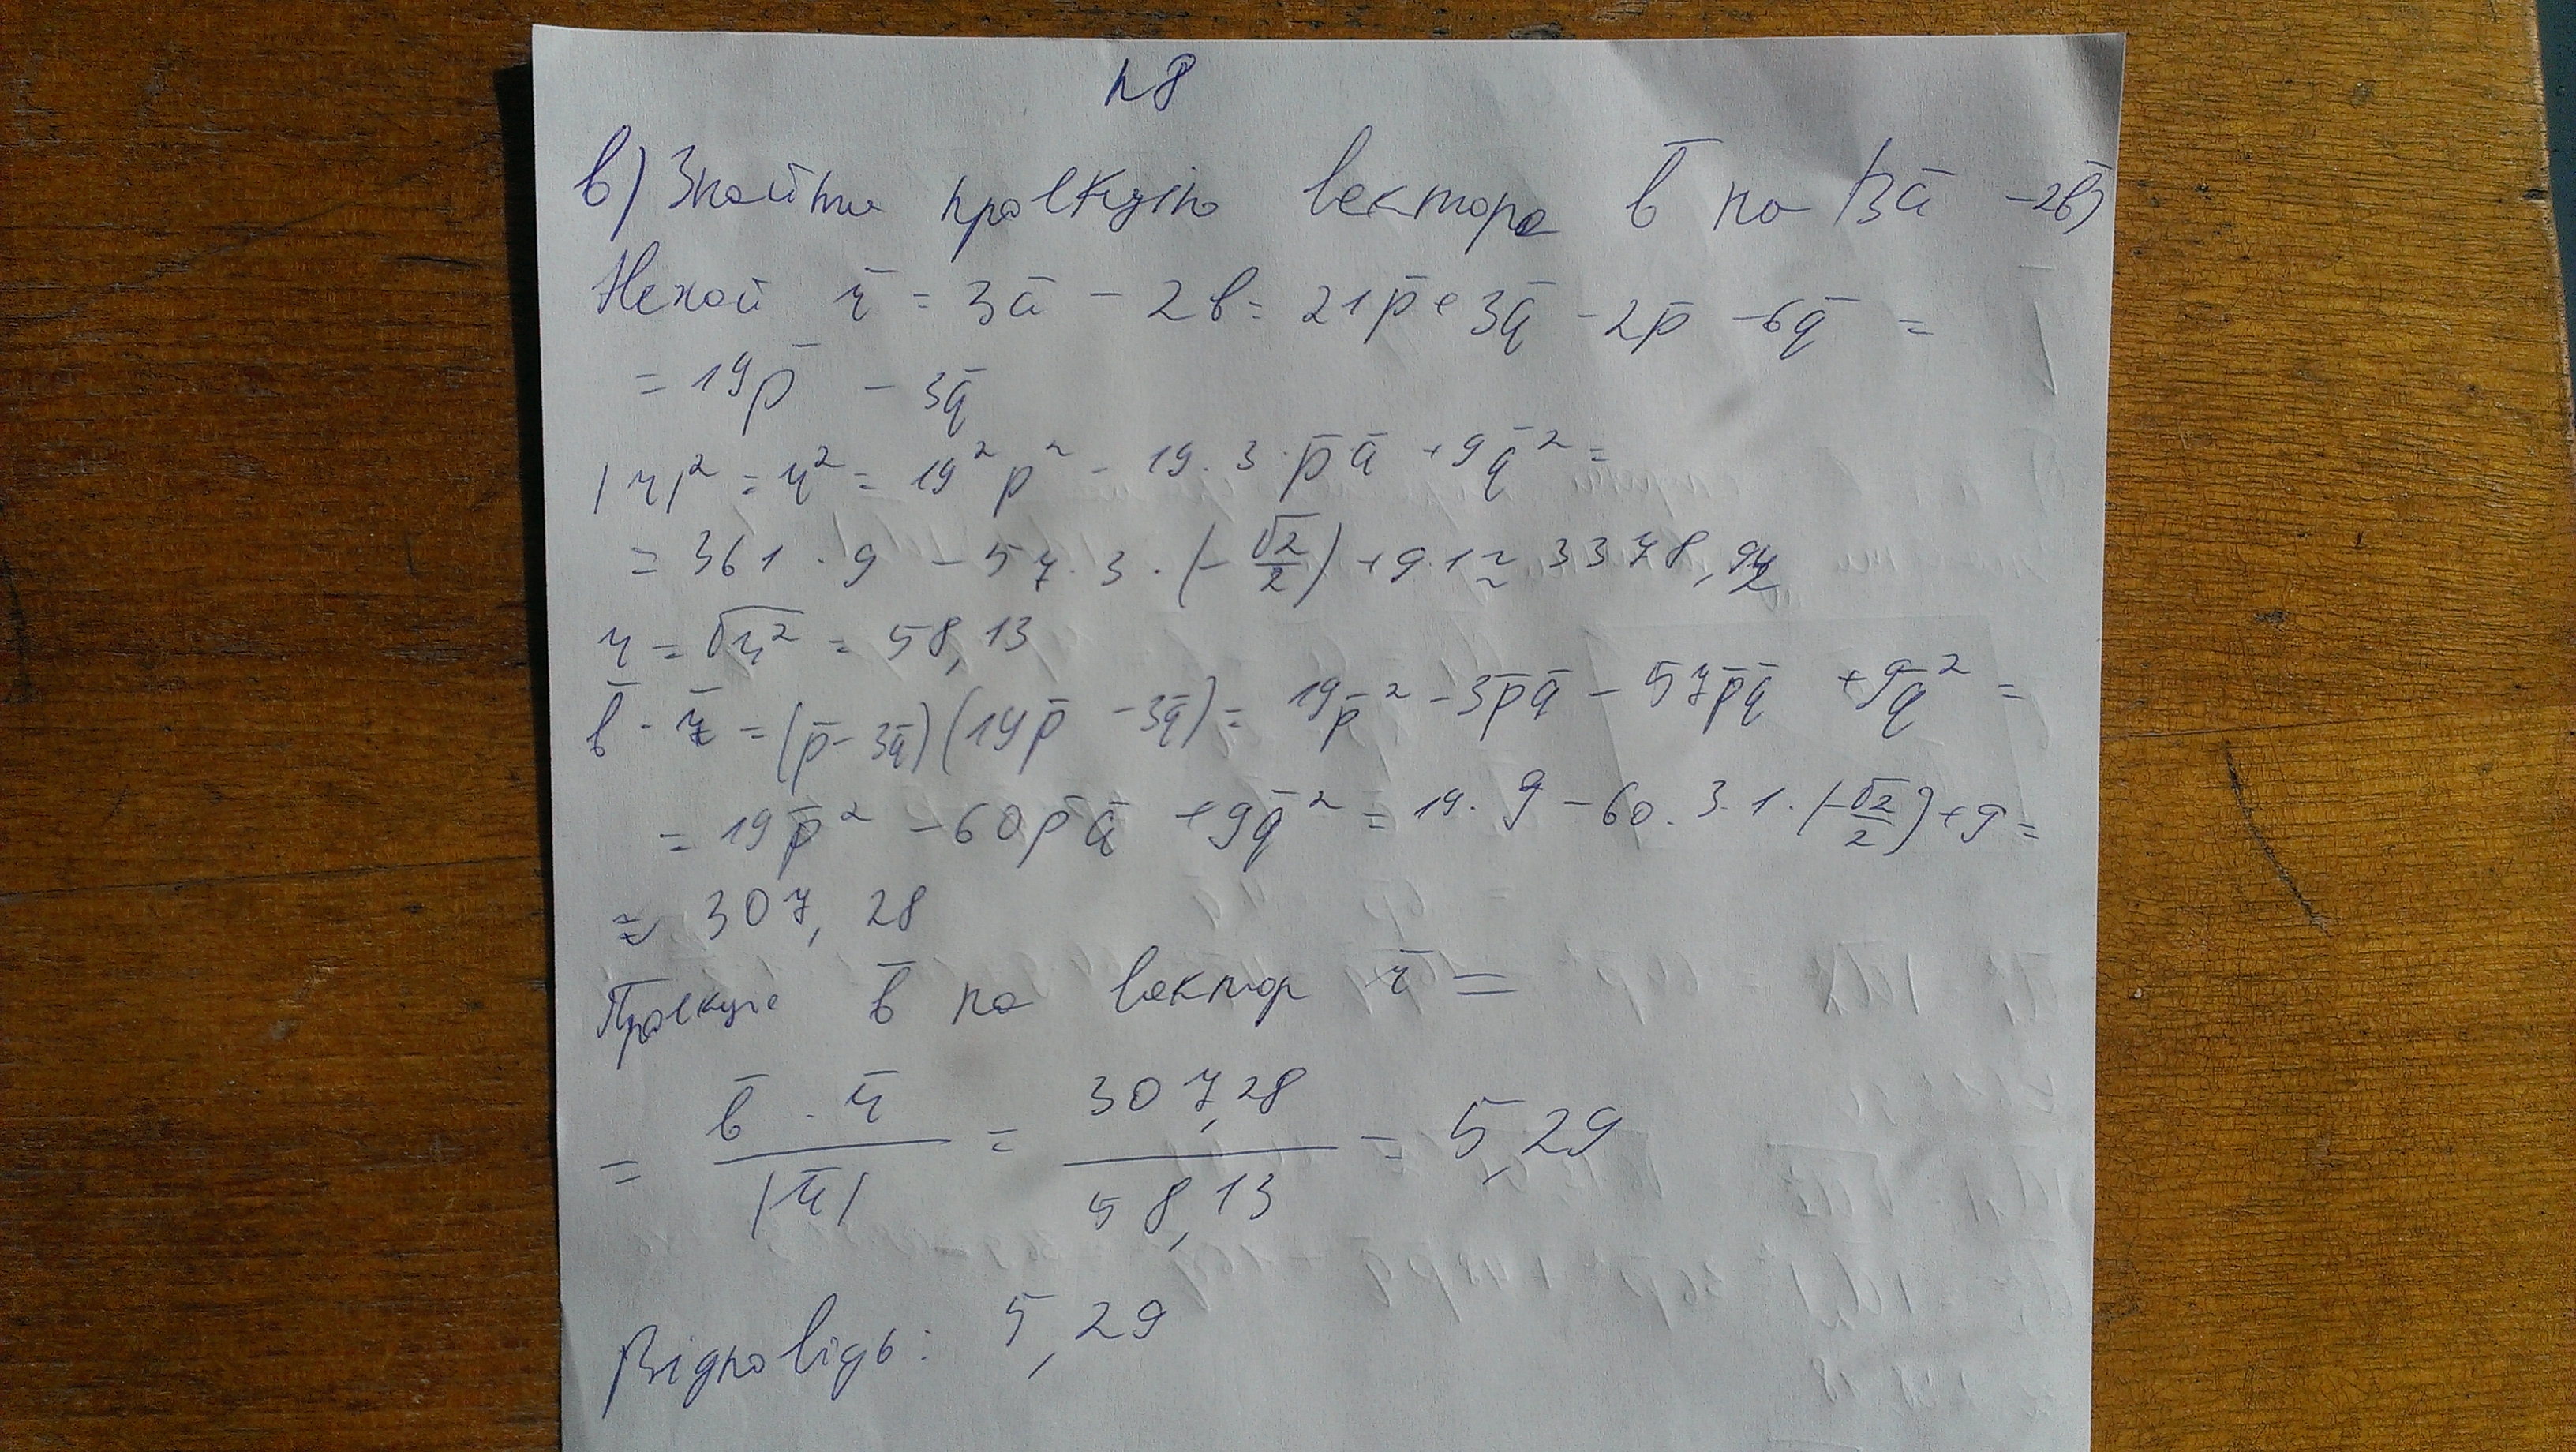 n8
в) Знайти проекцію вектора b̄ на (3ā - 2b̄)
Нехай r̄ = 3ā - 2b = 21p̄ + 3q̄ - 2p̄ - 6q̄ =
= 19p̄ - 3q̄
|r|² = r² = 19²p² - 19·3·p̄q̄ + 9q̄² =
= 361 · 9 - 57·3·(-√2/2) + 9·1 ≈ 3378,92
r = √r² = 58,13
b̄ · r̄ = (p̄ - 3q̄)(19p̄ - 3q̄) = 19p̄² - 3p̄q̄ - 57p̄q̄ + 9q̄² =
= 19p̄² - 60p̄q̄ + 9q̄² = 19·9 - 60·3·1·(-√2/2) + 9 =
≈ 307,28
Проекція b̄ на вектор r̄ =
= b̄ · r̄ / |r̄| = 307,28 / 58,13 = 5,29
Відповідь: 5,29